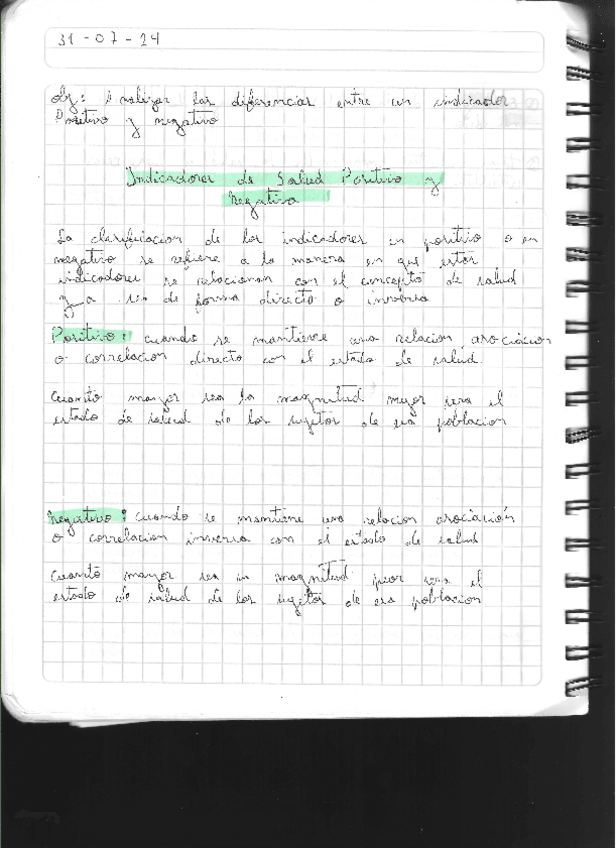 31-07-24
obj: Analizar las diferencias entre un indicador
Positivo y negativo
Indicadores de Salud Positivo y
Negativo
La clasificacion de los indicadores en positivo o en
negativo se refiere a la manera en que estos
indicadores se relacionan con el concepto de salud
ya sea de forma directo o inversa
Positivo: cuando se mantiene una relacion, asociacion
o correlacion directo con el estado de salud.
Cuanto mayor sea la magnitud mejor sera el
estado de salud de los sujetos de esa poblacion
Negativo: cuando se mantiene una relacion asociación
o correlacion inversa con el estado de salud
Cuanto mayor sea su magnitud peor sera el
estado de salud de los sujetos de esa poblacion